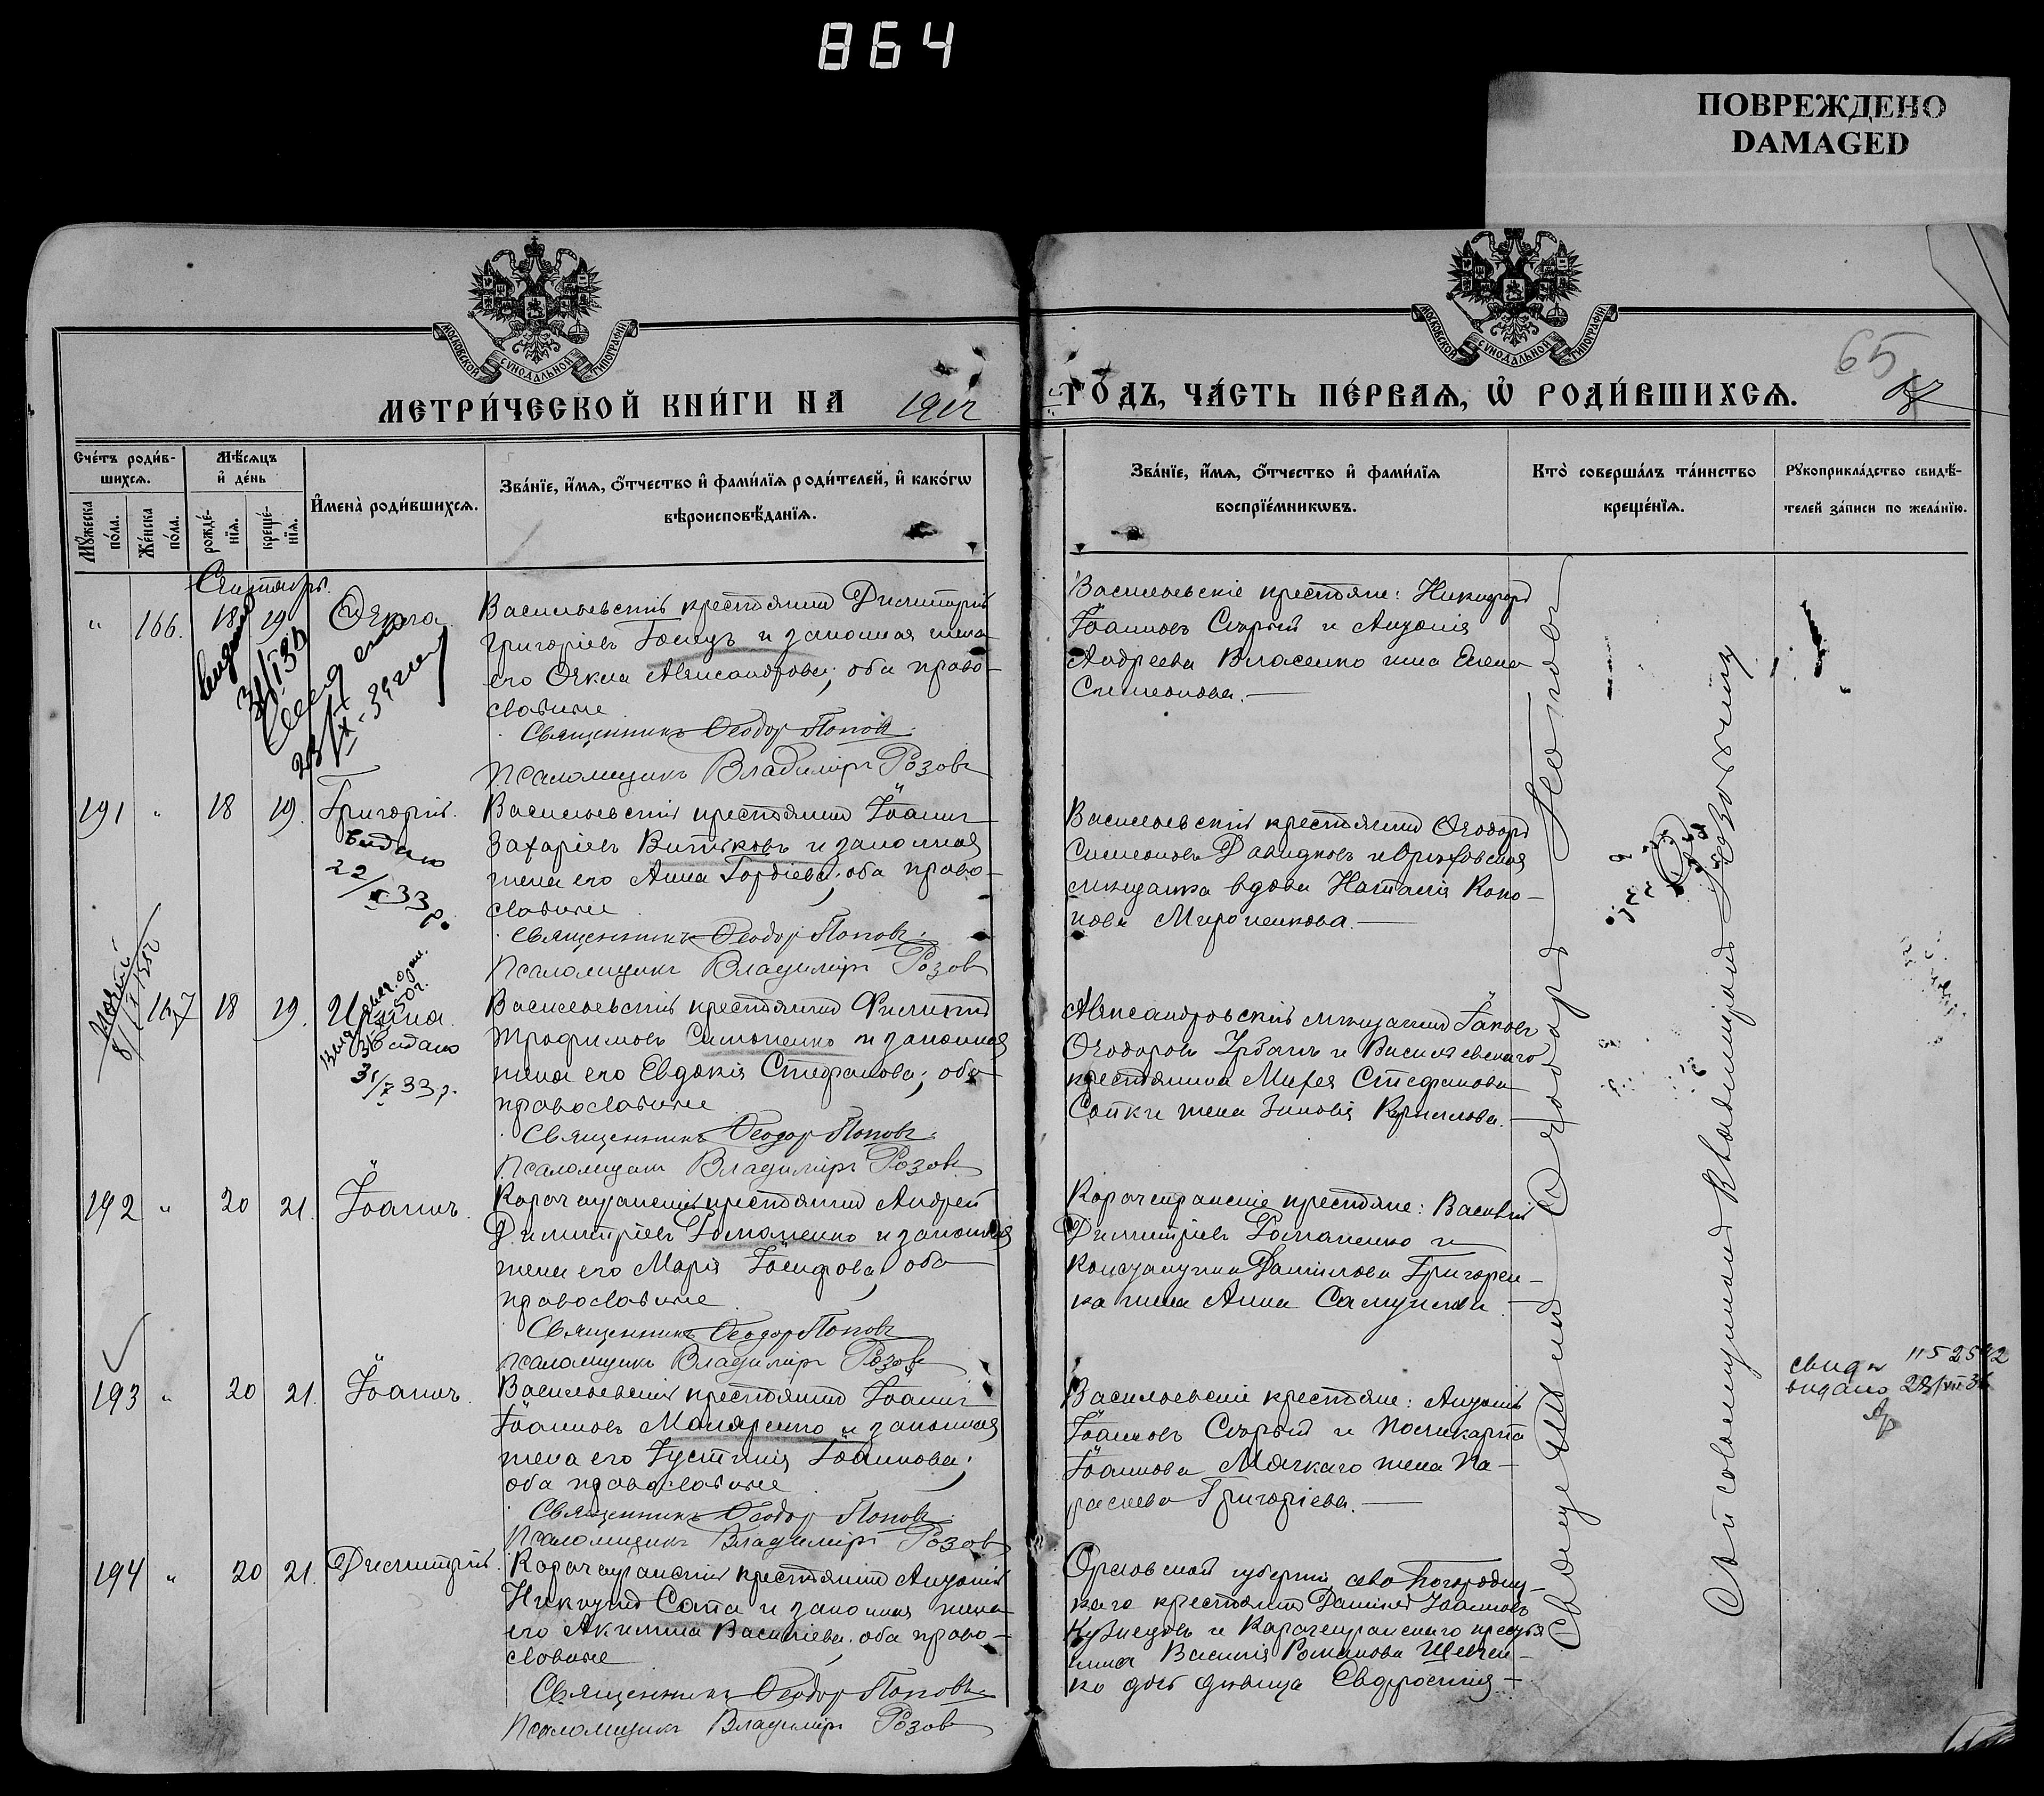 864
ПОВРЕЖДЕНО
DAMAGED
МОСКОВСКОЙ СѴНОДАЛЬНОЙ ТИПОГРАФІИ
МОСКОВСКОЙ СѴНОДАЛЬНОЙ ТИПОГРАФІИ
65
МЕТРИ́ЧЕСКОЙ КНИ́ГИ НА 1912 ГО́ДЪ, ЧА́СТЬ ПЕ́РВАѦ, Ѡ҆ РОДИ́ВШИХСѦ.
Сче́тъ роди́в-
шихсѧ.
Мꙋ́жеска
по́ла.
Же́нска
по́ла.
Мѣ́сѧцъ
и҆ де́нь
рожде́-
нїѧ.
креще́-
нїѧ.
И҆мена̀ роди́вшихсѧ.
Зва́нїе, и҆́мѧ, ѻ҆́тчество и҆ фами́лїѧ роди́телей, и҆ како́гѡ
вѣроисповѣ́данїѧ.
Зва́нїе, и҆́мѧ, ѻ҆́тчество и҆ фами́лїѧ
воспрїе́мникѡвъ.
Кто̀ соверша́лъ та́инство
креще́нїѧ.
Рꙋкоприкла́дство свидѣ́-
телей за́писи по жела́нїю.
Сентябрь.
" 166. 18 19 Ѳекла
Васильевскій крестьянинъ Димитрій
Григоріевъ и законная жена
его Ѳекла Александрова; оба право-
славные
Священникъ Ѳеодоръ Поповъ.
Псаломщикъ Владиміръ Розовъ
Васильевскіе крестьяне: Никифоръ
Іоанновъ Скорый и Антонія
Андреева Власенко жена Елена
Симеонова.
191 " 18 19. Григорій.
Видано
22/X 33 р.
Васильевскій крестьянинъ Іоаннъ
Захаріевъ Витковъ и законная
жена его Анна Гордіева; оба право-
славные
Священникъ Ѳеодоръ Поповъ.
Псаломщикъ Владиміръ Розовъ
Васильевскій крестьянинъ Ѳеодоръ
Симеоновъ Давидковъ и Орѣховская
мѣщанка вдова Наталія Коно-
нова Мироненкова.
167 18 19. Ирина.
Видано
33 р.
Васильевскій крестьянинъ Филиппъ
Трофимовъ Симоненко и законная
жена его Евдокія Стефанова; оба
православные
Священникъ Ѳеодоръ Поповъ.
Псаломщикъ Владиміръ Розовъ
Александровскій мѣщанинъ Іаковъ
Ѳеодоровъ Урбанъ и Васильевскаго
крестьянина Михея Стефанова
Сопки жена Зиновія Кириллова.
192 " 20 21. Іоаннъ.
Карачекракскій крестьянинъ Андрей
Димитріевъ Романенко и законная
жена его Марія Іосифова; оба
православные
Священникъ Ѳеодоръ Поповъ
Псаломщикъ Владиміръ Розовъ
Карачекракскіе крестьяне: Василій
Димитріевъ Романенко и
Даніилова Григорен-
ка жена Анна
193 " 20 21. Іоаннъ.
Васильевскій крестьянинъ Іоаннъ
Іоанновъ Макаренко и законная
жена его Іустинія Іоаннова;
оба православные
Священникъ Ѳеодоръ Поповъ.
Псаломщикъ Владиміръ Розовъ
Васильевскіе крестьяне: Антоній
Іоанновъ Скорый и Поликарпа
Іоаннова Мягкаго жена Па-
раскева Григоріева.
194 " 20 21. Димитрій.
Карачекракскій крестьянинъ Антоній
Сопа и законная жена
его Акилина Василіева; оба право-
славные
Священникъ Ѳеодоръ Поповъ
Псаломщикъ Владиміръ Розовъ
Орловской губерніи села Богородиц-
каго крестьянинъ Даніилъ Іоанновъ
Кузнецовъ и Карачекракскаго крестья-
нина Василія Романова Шевчен-
ко дочь дѣвица Евфросинія.
Священникъ Ѳеодоръ Поповъ